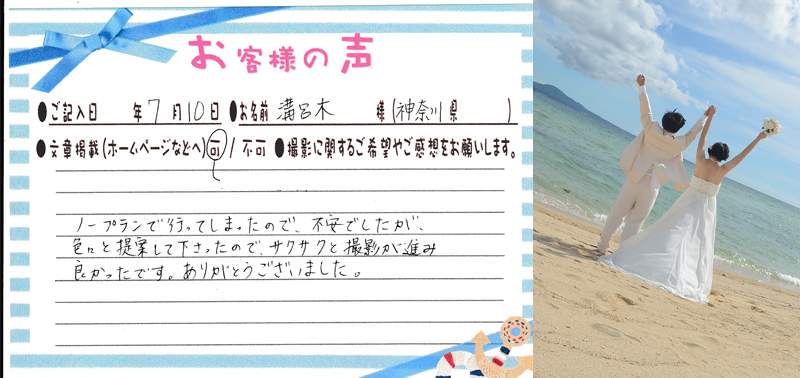 お客様の声
●ご記入日 年7月10日 ●お名前 溝呂木 様(神奈川県 )
●文章掲載(ホームページなどへ)可/不可 ●撮影に関するご希望やご感想をお願いします。
ノープランで行ってしまったので、不安でしたが、
色々と提案して下さったので、サクサクと撮影が進み
良かったです。ありがとうございました。